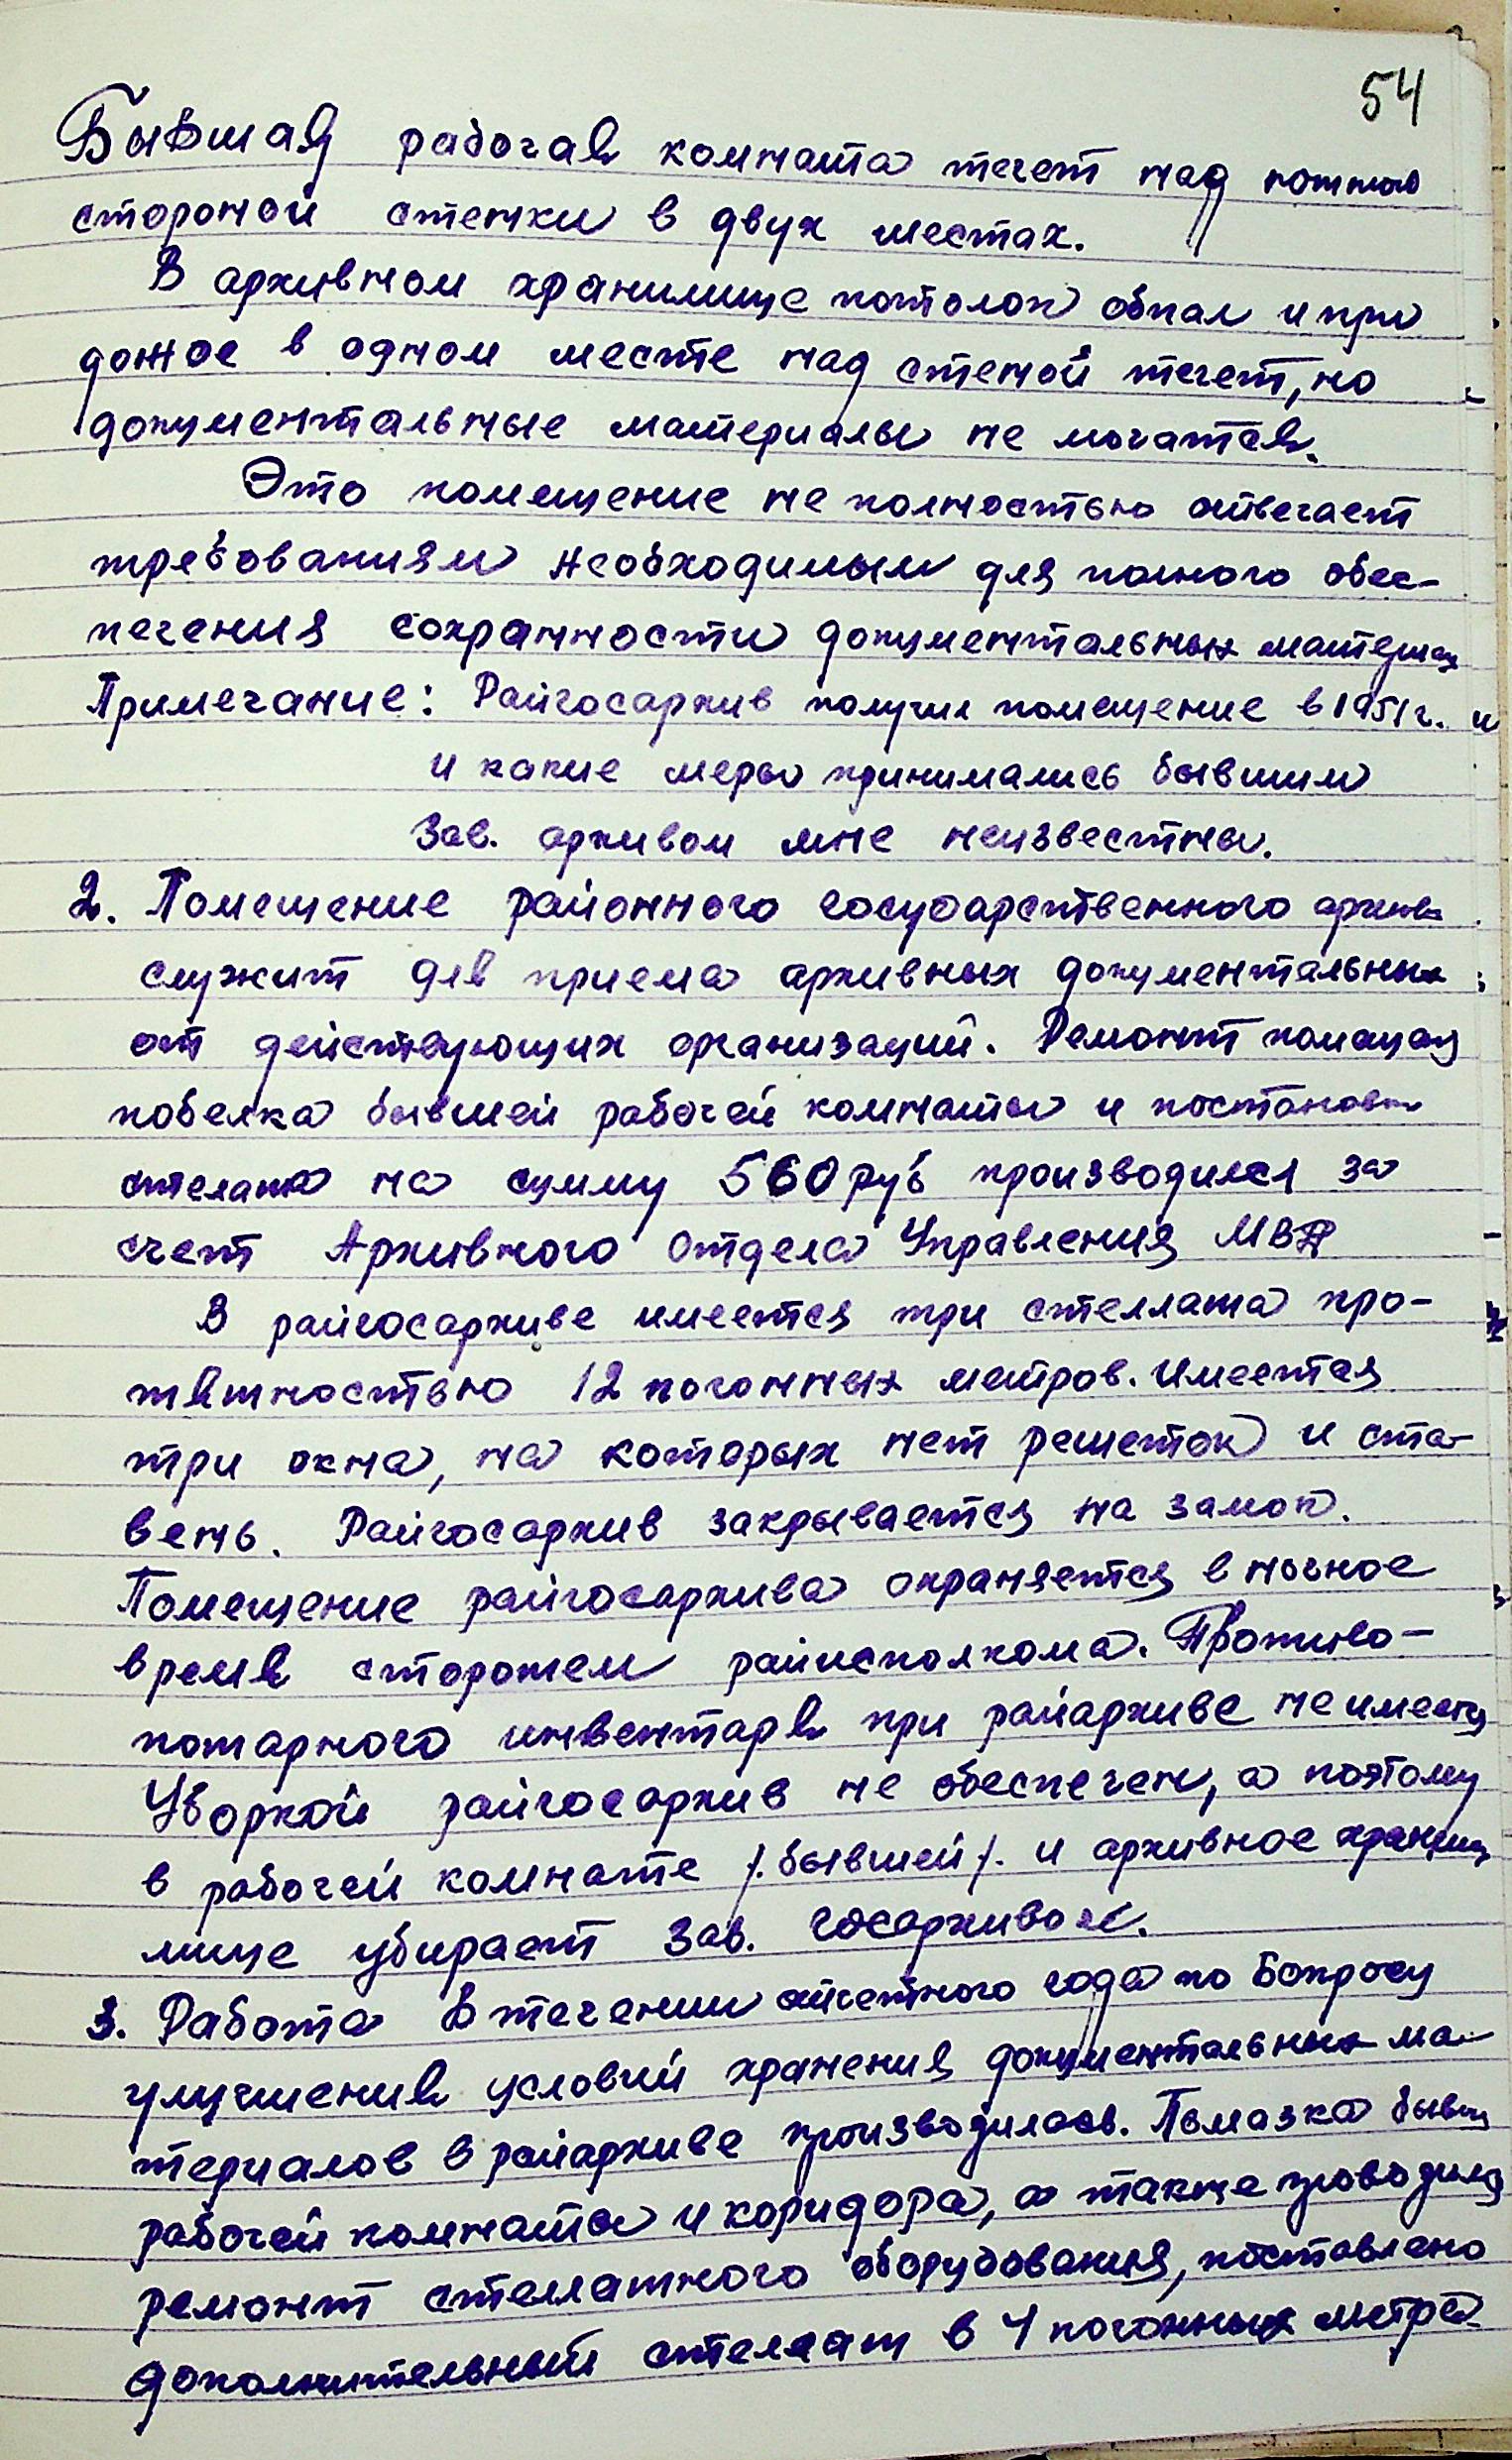 54
Бывшая рабочая комната течет над
стороной стенки в двух местах.
В архивном хранилище потолок обпал и при
дожде в одном месте над стеной течет, но
документальные материалы не мочатся.
Это помещение не полностью отвечает
требованиям необходимым для полного обес-
печения сохранности документальных материал
Примечание: Райгосархив получил помещение в 1951 г.
и какие меры принимались бывшим
Зав. архивом мне неизвестны.
2. Помещение районного государственного архива
служит для приема архивных документальных
от действующих организаций. Ремонт помещен
побелка бывшей рабочей комнаты и постановка
стелажа на сумму 560 руб производился за
счет Архивного отдела Управления МВД
В райгосархиве имеется три стеллажа про-
тяжностью 12 погонных метров. Имеется
три окна, на которых нет решеток и ста-
вень. Райгосархив закрывается на замок.
Помещение райгосархива охраняется в ночное
время сторожем райисполкома. Противо-
пожарного инвентаря при райархиве не имеется
Уборкой райгосархив не обеспечен, а поэтому
в рабочей комнате /.бывшей/. и архивное храни
лище убирает Зав. госархивом.
3. Работа в течении отчетного года по вопросу
улучшения условий хранения документальных ма-
териалов в райархиве производилась. Помазка бывш
рабочей комнаты и коридора, а также проводился
ремонт стеллажного оборудования, поставлено
дополнительный стелаж в 4 погонных метра